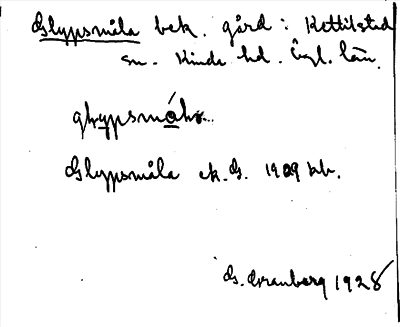 Glyppsmåla bek. gård: Kettilstad
sn. Kinda hd. Ögl. län.
glypsmåla..
Glyppsmåla ek. G. 1909 kb.
G. Granberg 1928